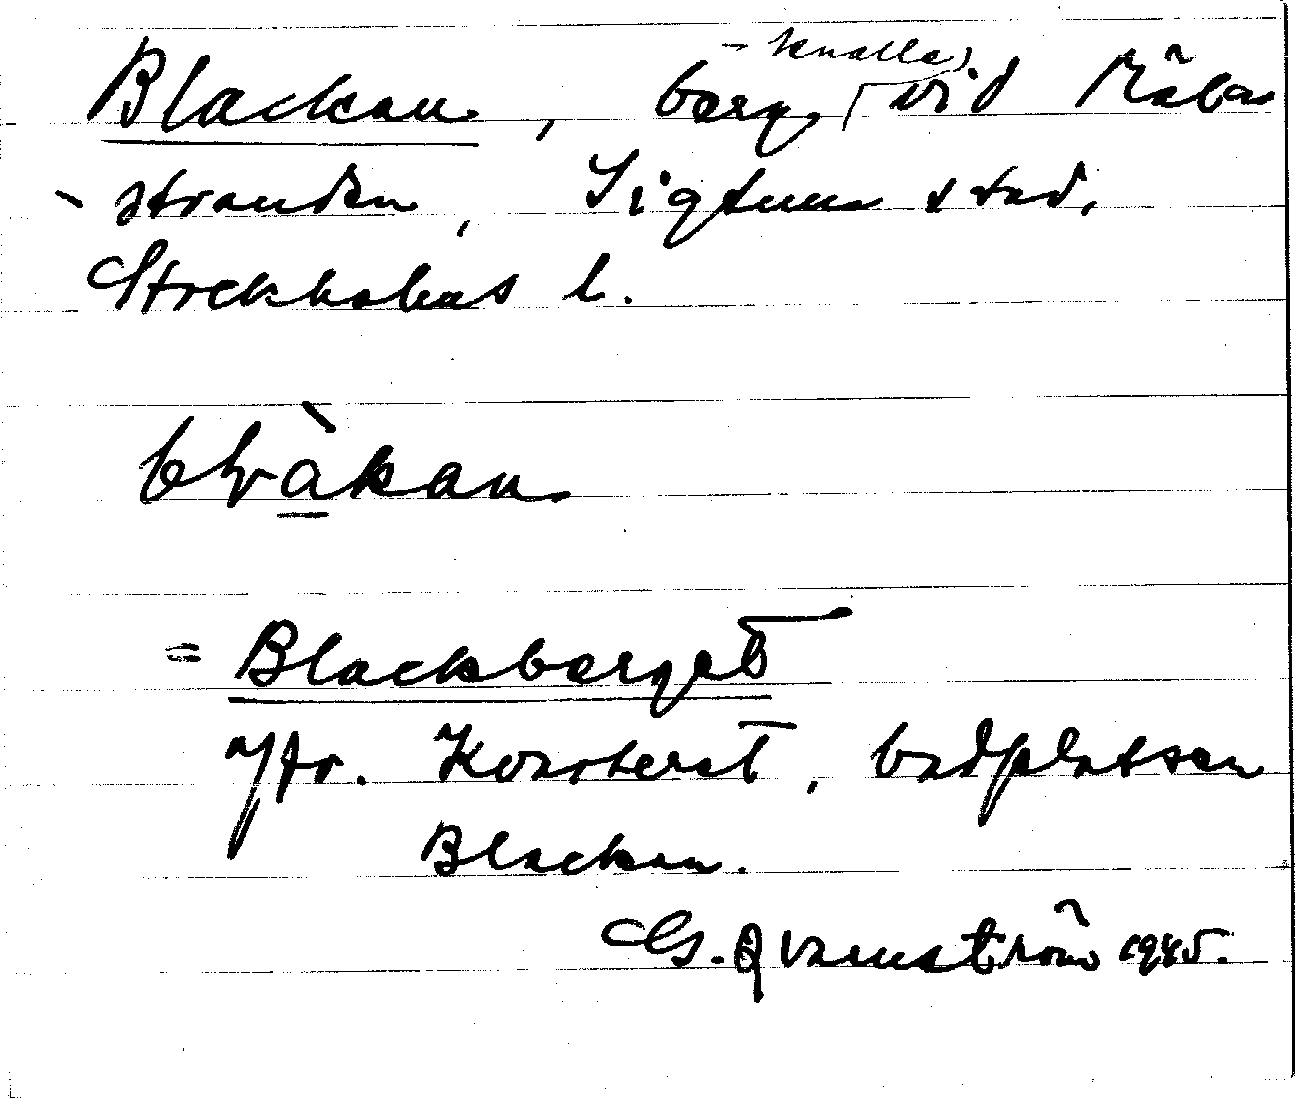 Blackan, berg(-knalle) vid Råba-
-stranden, Sigtuna stad,
Stockholms l.
blràkan
= Blackberget
Jfr. Kvarteret, badplatsen
Blackan.
G. Qvarnström 1945.